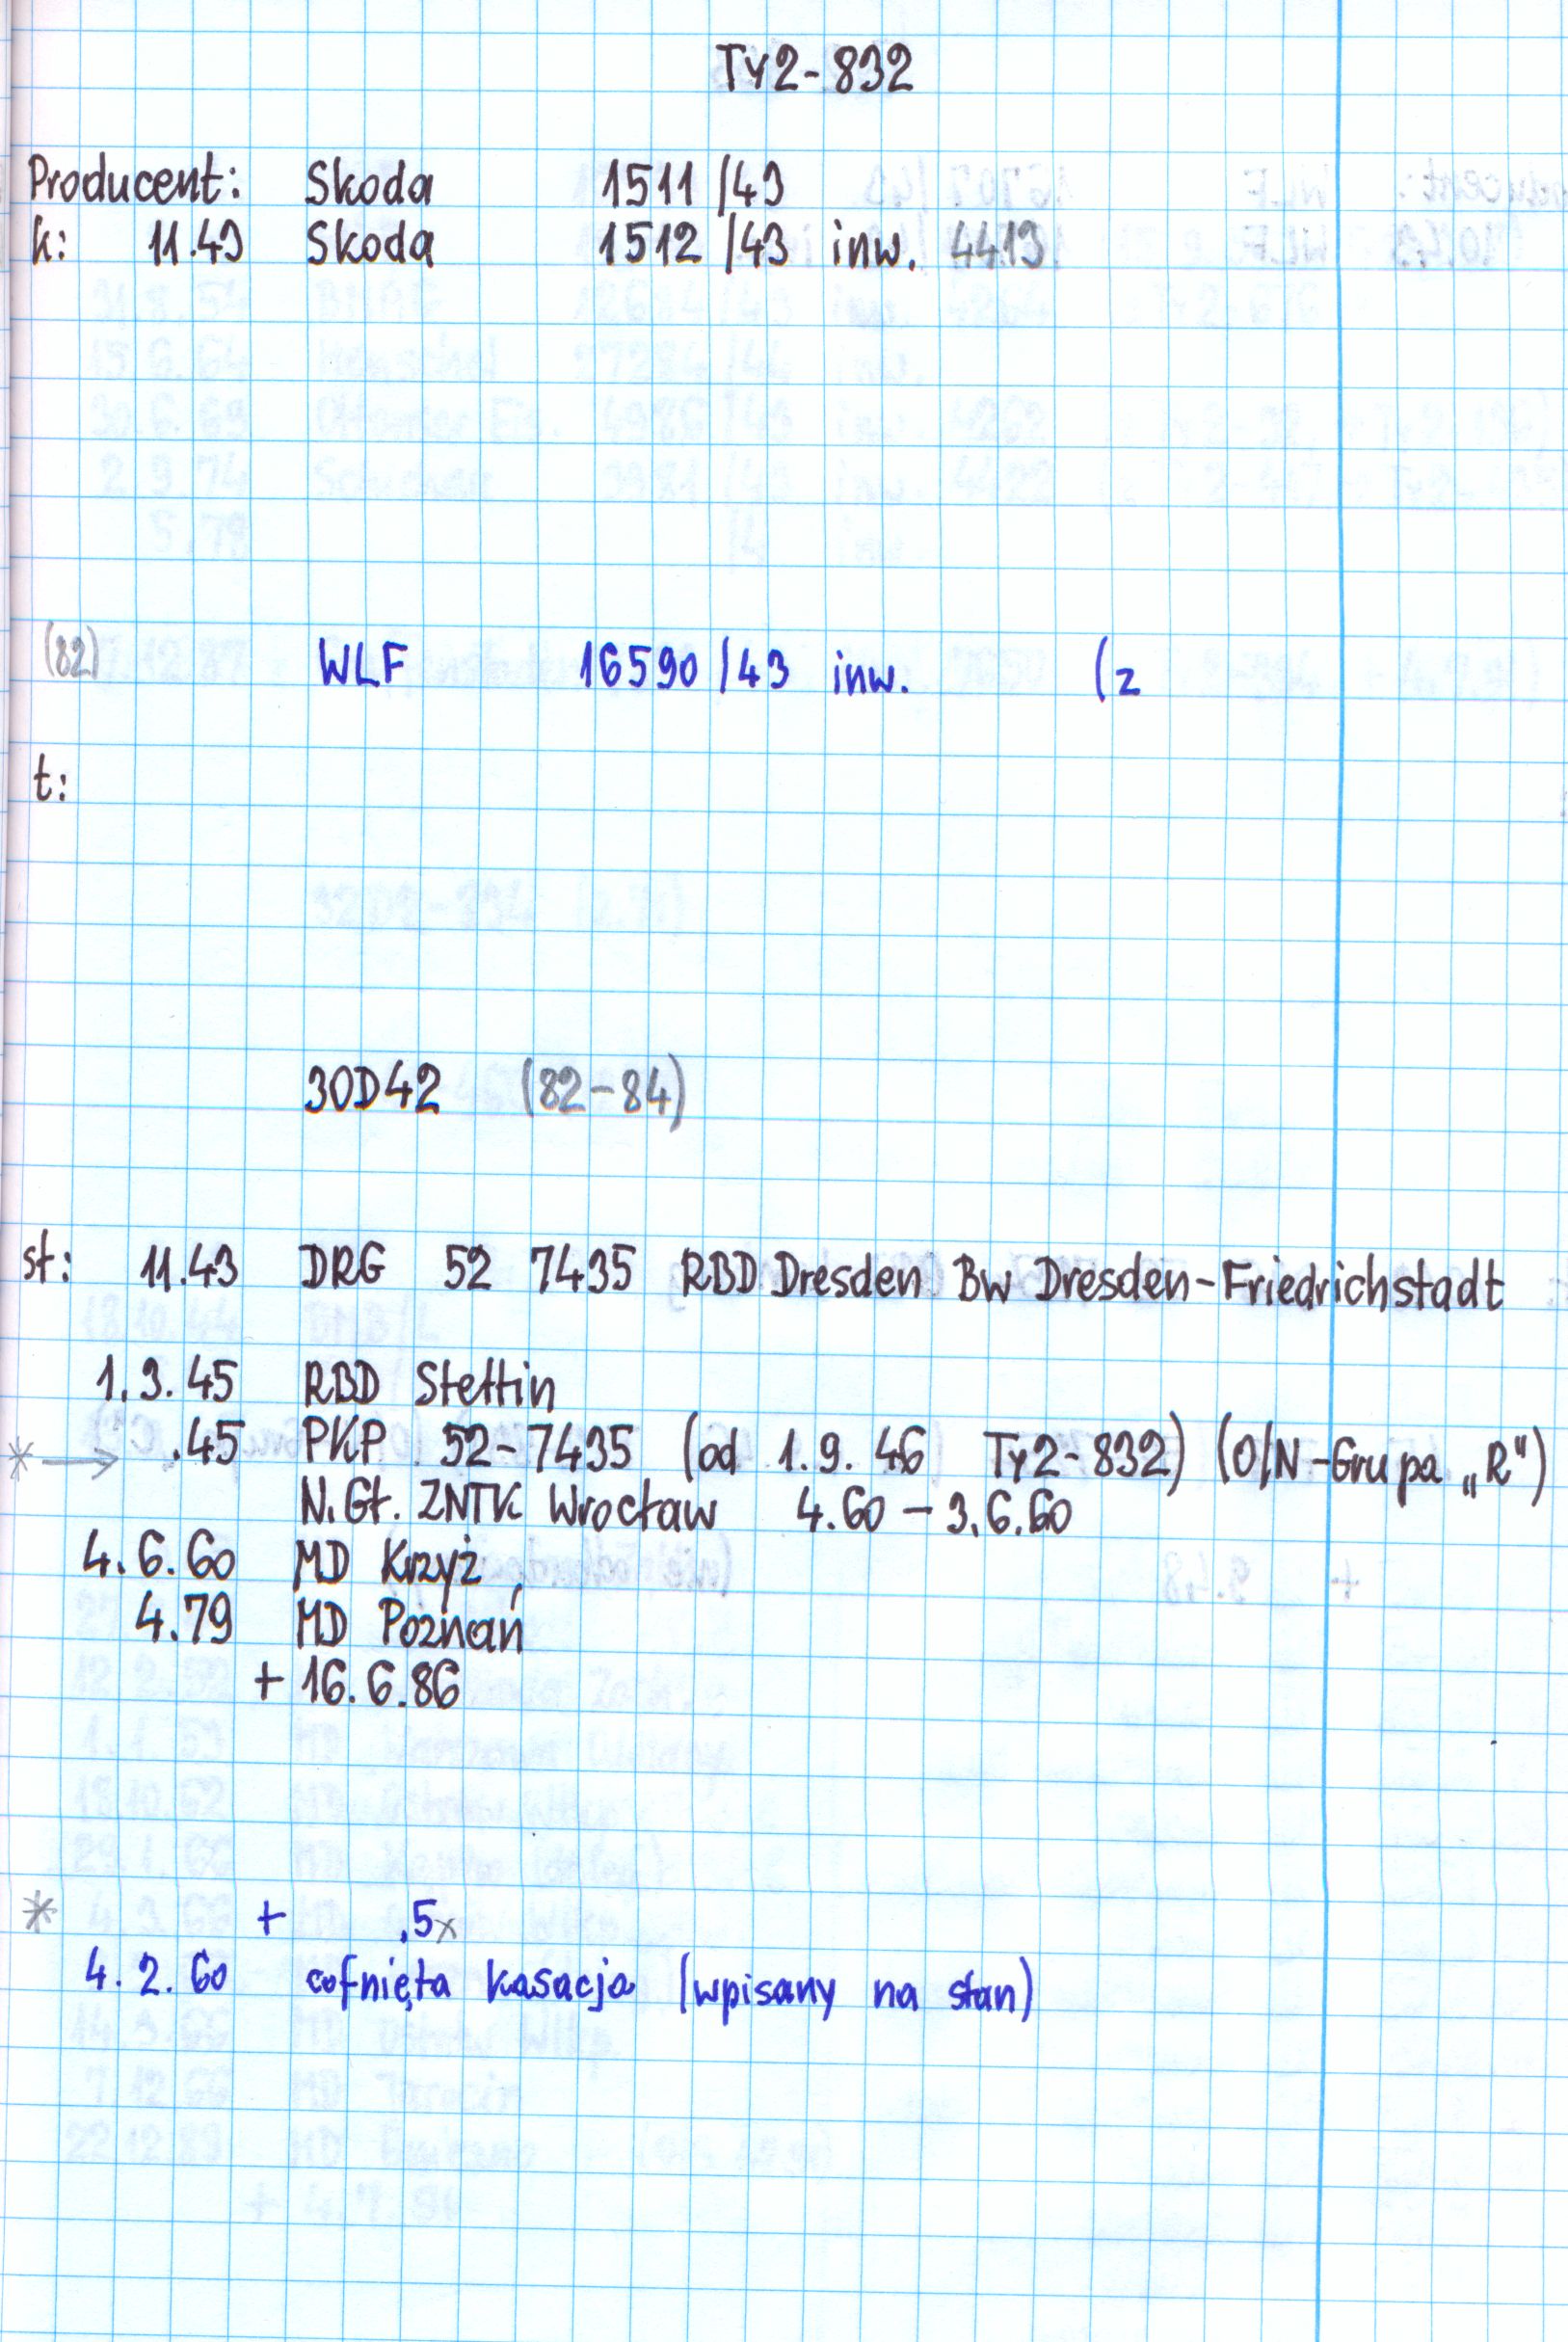 Ty2-832
Producent: Skoda 1511/43
k: 11.43 Skoda 1512/43 inw. 4413
(82) WLF 16590/43 inw. (z
t:
30D42 (82-84)
st: 11.43 DRG 52 7435 RBD Dresden Bw Dresden-Friedrichstadt
1.3.45 RBD Stettin
* → .45 PKP 52-7435 (od 1.9.46 Ty2-832) (O/N-Grupa „R")
N.Gł. ZNTK Wrocław 4.60 - 3.6.60
4.6.60 MD Krzyż
4.79 MD Poznań
+ 16.6.86
* + .5x
4.2.60 cofnięta kasacja (wpisany na stan)